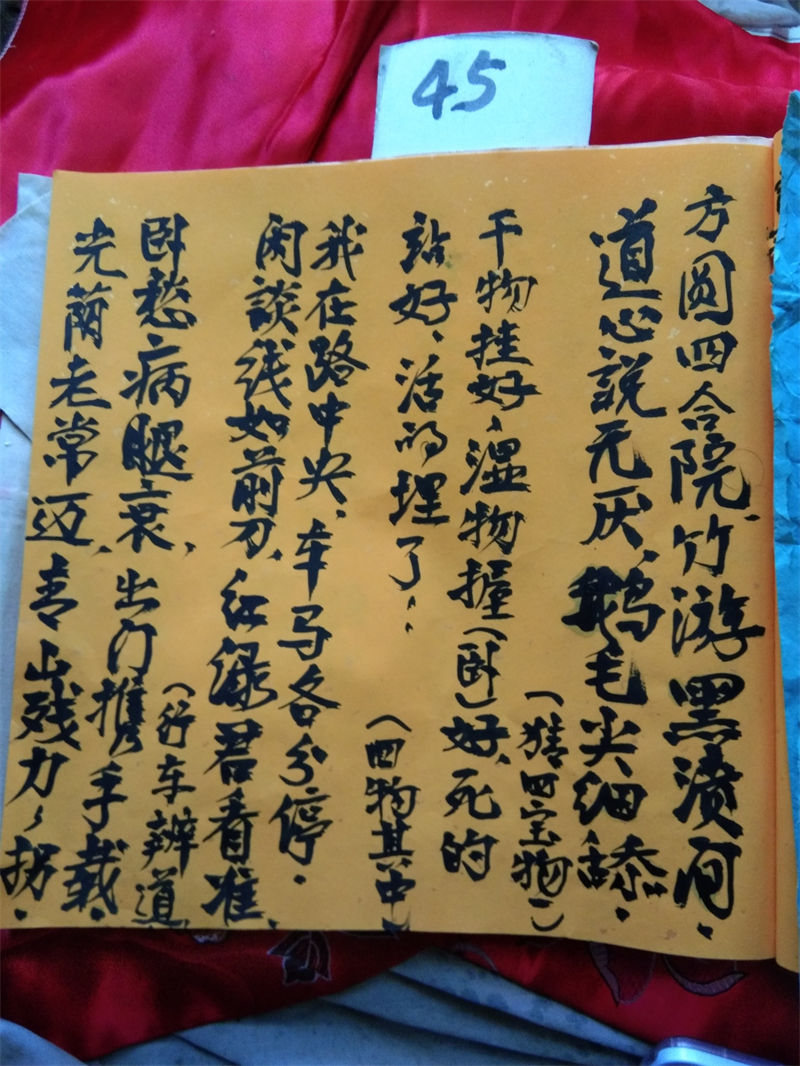 45
方圆四合院、竹游黑渍河、
道心説无厌、鹅毛尖细舔、
(猜四宝物)
干物挂好、湿物握(卧)好、死的
站好、活的埋了、
(四物其中)
我在路中央、车马各分停、
闲谈线如前刀、红绿君看准、
(行车辨道
卧愁病腿衰、出门携手载、
光荫老常迈、青山残力、拐、